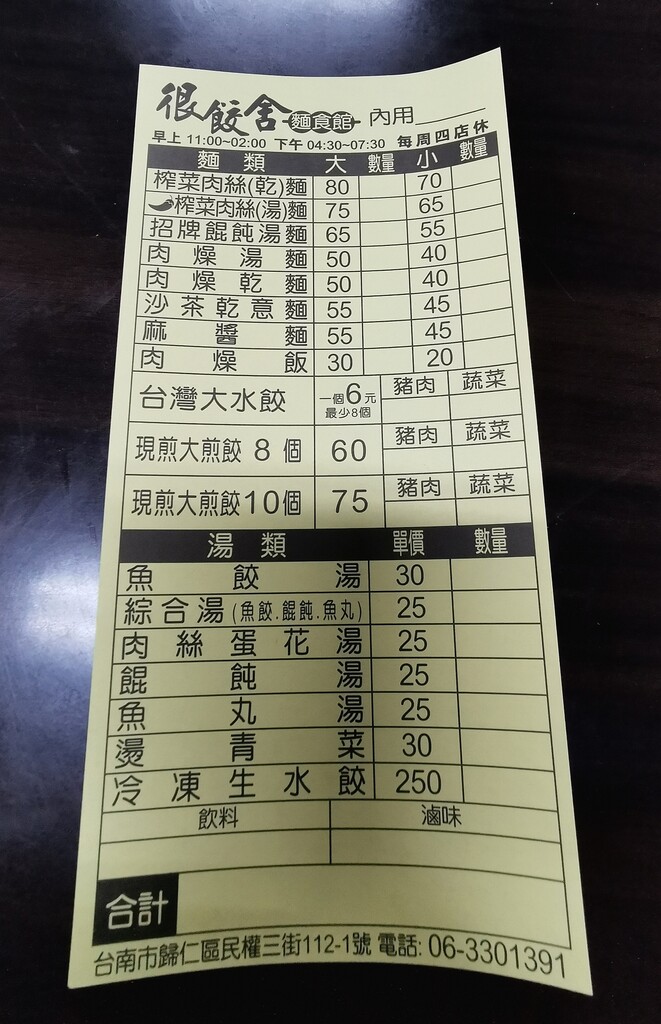 很餃舍 麵食館 內用
早上 11:00~02:00 下午 04:30~07:30 每周四店休
麵類 大 數量 小 數量
榨菜肉絲(乾)麵 80 70
榨菜肉絲(湯)麵 75 65
招牌餛飩湯麵 65 55
肉燥湯麵 50 40
肉燥乾麵 50 40
沙茶乾意麵 55 45
麻醬麵 55 45
肉燥飯 30 20
台灣大水餃 一個6元 最少8個 豬肉 蔬菜
現煎大煎餃 8 個 60 豬肉 蔬菜
現煎大煎餃10個 75 豬肉 蔬菜
湯類 單價 數量
魚餃湯 30
綜合湯(魚餃.餛飩.魚丸) 25
肉絲蛋花湯 25
餛飩湯 25
魚丸湯 25
燙青菜 30
冷凍生水餃 250
飲料 滷味
合計
台南市歸仁區民權三街112-1號 電話: 06-3301391